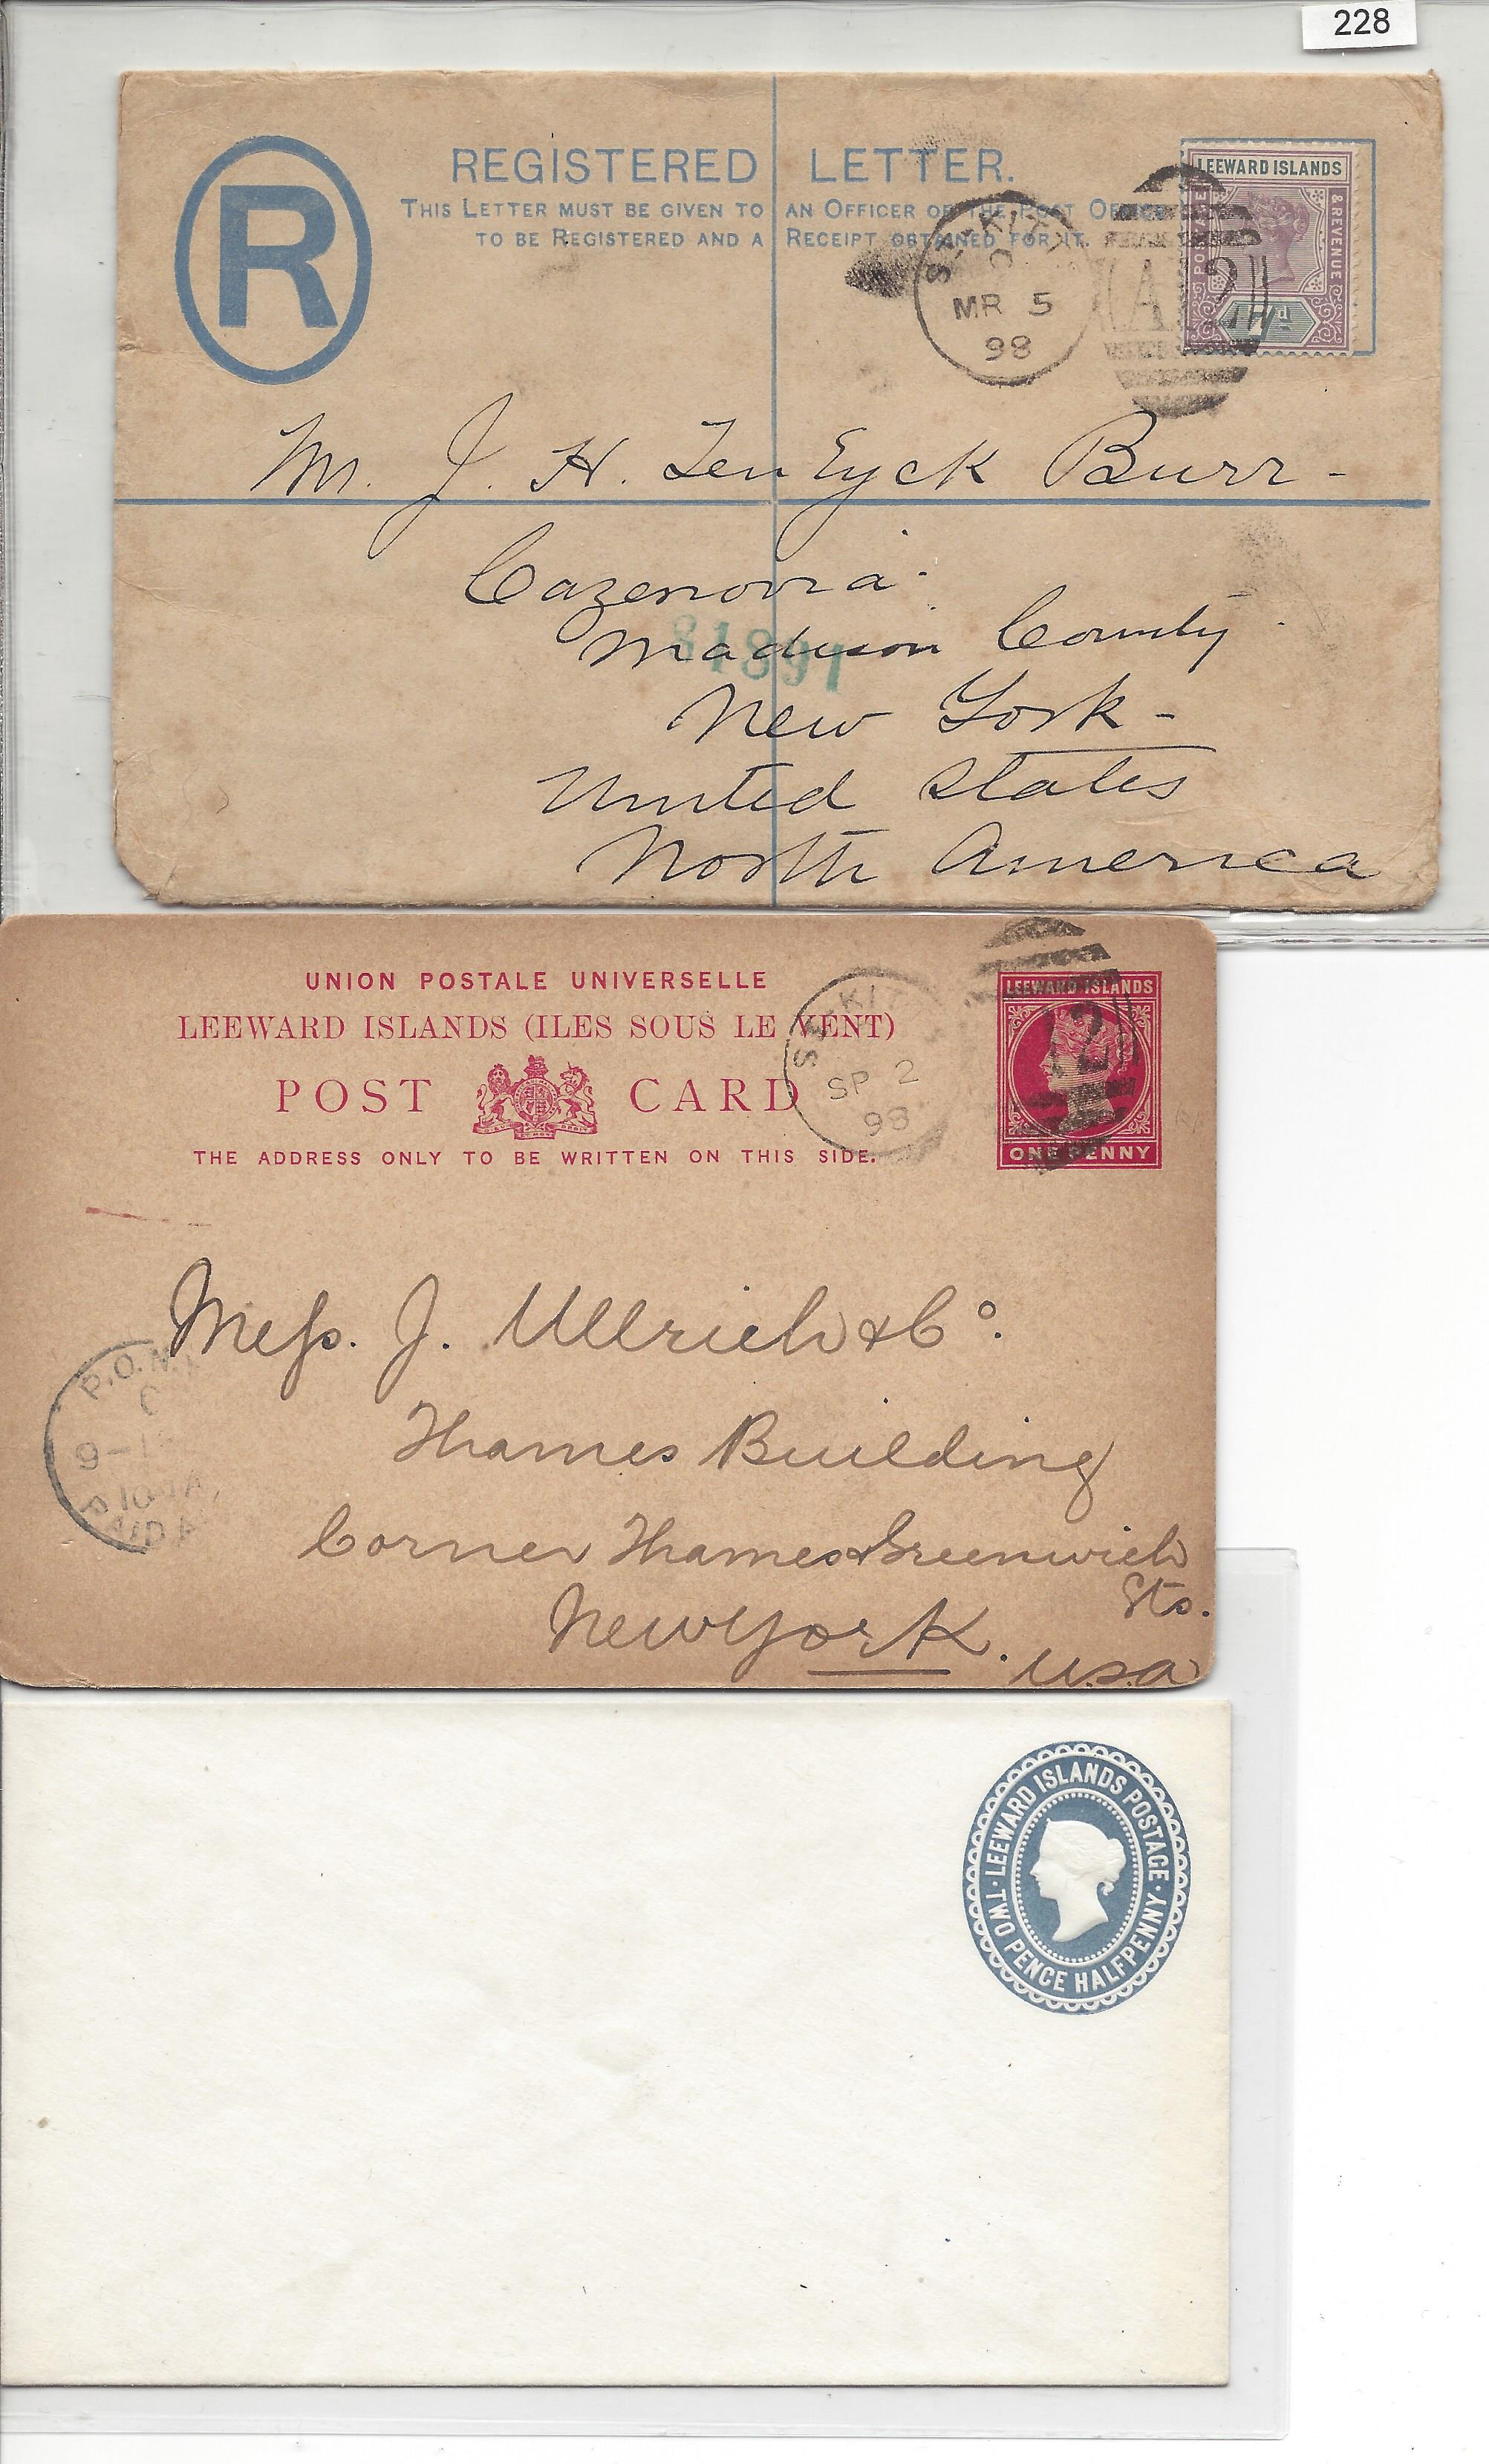 228
REGISTERED LETTER.
THIS LETTER MUST BE GIVEN TO AN OFFICER OF THE POST OFFICE
TO BE REGISTERED AND A RECEIPT OBTAINED FOR IT.
R
LEEWARD ISLANDS
POSTAGE & REVENUE
ST. KITTS
MR 5
98
A12
Mr. J. H. Ten Eyck Burr -
Cazenovia.
Madison County
81891
New York -
United States
North America
UNION POSTALE UNIVERSELLE
LEEWARD ISLANDS (ILES SOUS LE VENT)
POST CARD
THE ADDRESS ONLY TO BE WRITTEN ON THIS SIDE.
LEEWARD ISLANDS
ONE PENNY
ST. KITTS
SP 2
98
Mess. J. Ullrich & Co.
Thames Building
Corner Thames & Greenwich
Sts.
New York. U.S.A
PAID
LEEWARD ISLANDS POSTAGE
TWO PENCE HALFPENNY